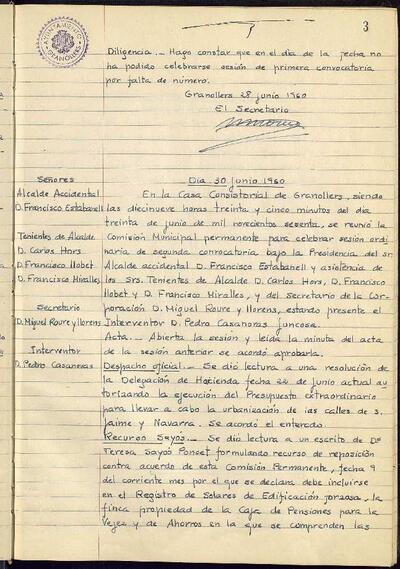 3
AYUNTAMIENTO
GRANOLLERS
Diligencia.- Hago constar que en el día de la fecha no
ha podido celebrarse sesión de primera convocatoria
por falta de número.
Granollers 28 junio 1960
El Secretario
Señores
Alcalde Accidental
D. Francisco Estabanell
Tenientes de Alcalde
D. Carlos Hors
D. Francisco Llobet
D. Francisco Miralles
Secretario
D. Miguel Roure y Llorens
Interventor
D. Pedro Casanovas
Día 30 junio 1960
En la Casa Consistorial de Granollers, siendo
las diecinueve horas treinta y cinco minutos del día
treinta de junio de mil novecientos sesenta, se reunió la
Comisión Municipal permanente para celebrar sesión ordi-
naria de segunda convocatoria bajo la Presidencia del sr.
Alcalde accidental D. Francisco Estabanell y asistencia de
los Srs. Tenientes de Alcalde D. Carlos Hors, D. Francisco
Llobet y D. Francisco Miralles, y del Secretario de la Cor-
poración D. Miguel Roure y Llorens, estando presente el
Interventor D. Pedro Casanovas Juncosa.
Acta.- Abierta la sesión y leída la minuta del acta
de la sesión anterior se acordó aprobarla.
Despacho oficial.- Se dió lectura a una resolución de
la Delegación de Hacienda fecha 22 de junio actual au-
torizando la ejecución del Presupuesto extraordinario
para llevar a cabo la urbanización de las calles de S.
Jaime y Navarra. Se acordó el enterado.
Recurso Sayós.- Se dió lectura a un escrito de Dª
Teresa Sayós Poncet formulando recurso de reposición
contra acuerdo de esta Comisión Permanente, fecha 9
del corriente mes por el que se declara debe incluirse
en el Registro de Solares de Edificación forzosa, la
finca propiedad de la Caja de Pensiones para la
Vejez y de Ahorros en la que se comprenden las